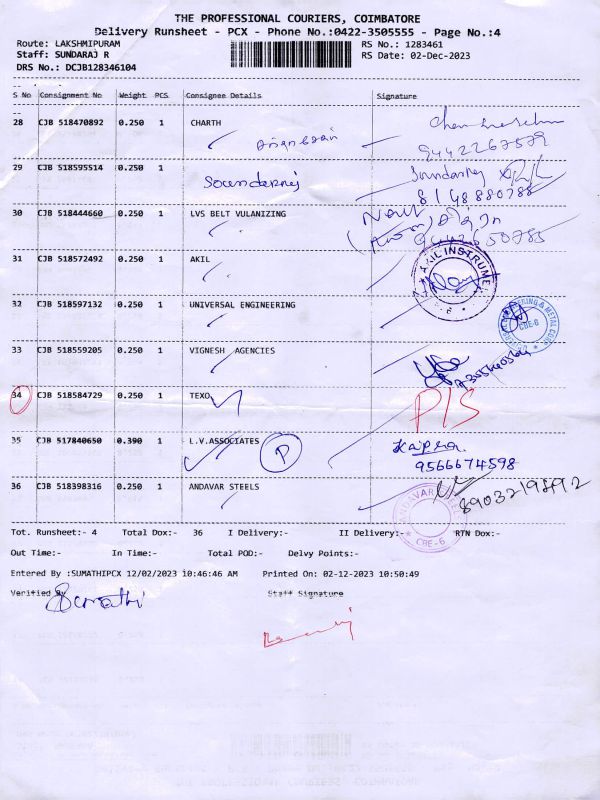 THE PROFESSIONAL COURIERS, COIMBATORE
Delivery Runsheet - PCX - Phone No.:0422-3505555 - Page No.:4
Route: LAKSHMIPURAM RS No.: 1283461
Staff: SUNDARAJ R RS Date: 02-Dec-2023
DRS No.: DCJB128346104
S No Consignment No Weight PCS Consignee Details Signature
28 CJB 518470892 0.250 1 CHARTH
9442267579
29 CJB 595514 0.250 1
Soundarraj Soundarraj
8148880788
30 CJB 518444660 0.250 1 LVS BELT VULANIZING
9442650785
31 CJB 518572492 0.250 1 AKIL
AKIL INSTRUME
32 CJB 518597132 0.250 1 UNIVERSAL ENGINEERING
ERING & METAL CORP.
CBE-6
33 CJB 518559205 0.250 1 VIGNESH AGENCIES
34 CJB 518584729 0.250 1 TEXO
P/S
35 CJB 517840650 0.390 1 L.V.ASSOCIATES P
9566674598
36 CJB 518398316 0.250 1 ANDAVAR STEELS
8903219892
ANDAVAR STEEL
CBE-6
Tot. Runsheet:- 4 Total Dox:- 36 I Delivery:- II Delivery:- RTN Dox:-
Out Time:- In Time:- Total POD:- Delvy Points:-
Entered By :SUMATHIPCX 12/02/2023 10:46:46 AM Printed On: 02-12-2023 10:50:49
Verified By Staff Signature
Sumathi